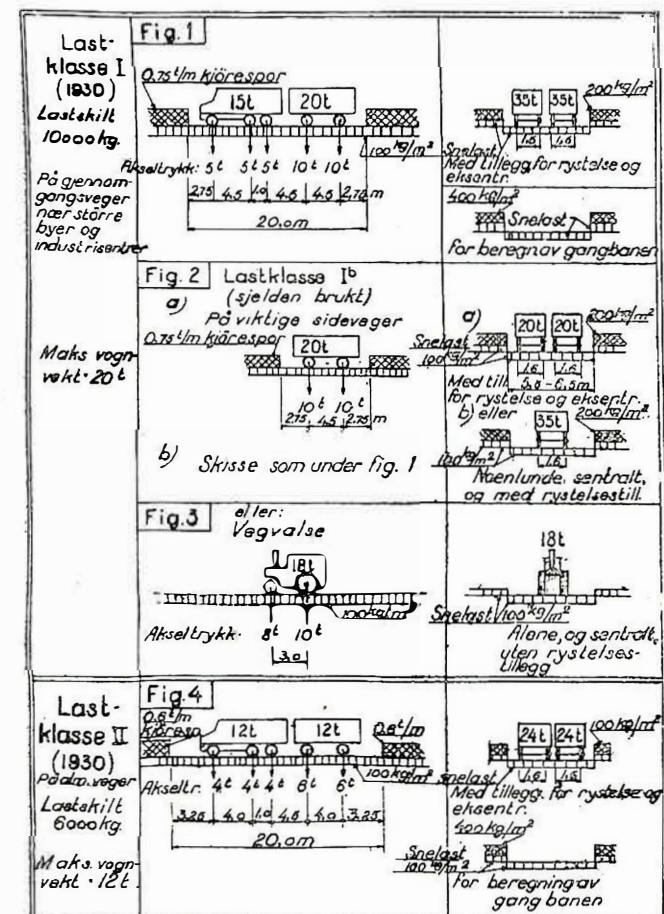 Last-
klasse I
(1930)
Lastskilt
10000kg.
På gjennom-
gangsveger
nær större
byer og
industrisentrer
Fig. 1
0.75 t/m kjörespor
15t 20t
Akseltrykk: 5t 5t 5t 10t 10t
100 kg/m²
2.75 4.5 1.0 4.5 4.5 2.75 m
20.0m
35t 35t
200 kg/m²
Snelast
1,6 1,6
Med tillegg for rystelse og
eksentr.
400 kg/m²
Snelast
for beregn av gangbanen
Maks vogn-
vekt · 20t
Fig. 2 Lastklasse Ib
a) (sjelden brukt)
På viktige sideveger
0.75 t/m kjörespor
20t
10t 10t
2.75 4.5 2.75 m
b) Skisse som under fig. 1
a)
20t 20t
200 kg/m²
Snelast
100 kg/m²
1.6 1.6
Med till
for rystelse og eksentr.
b) eller
35t
200 kg/m²
100 kg/m²
1.6
Noenlunde sentralt,
og med rystelsestill.
Fig. 3 eller:
Vegvalse
18t
Akseltrykk. 8t 10t
3.0
18t
Snelast 100 kg/m²
Alene, og sentralt,
uten rystelses-
tillegg
Last-
klasse II
(1930)
På alm. veger
Lastskilt
6000kg.
Maks. vogn-
vekt · 12t.
Fig. 4
0.6 t/m
12t 12t
0.6 t/m
100 kg/m²
Akseltr. 4t 4t 4t 6t 6t
3.25 4.0 1.0 4.0 3.25
20.0m
24t 24t
100 kg/m²
Snelast
1,6 1,6
Med tillegg. for rystelse og
eksentr.
400 kg/m²
Snelast
100 kg/m²
for beregning av
gang banen